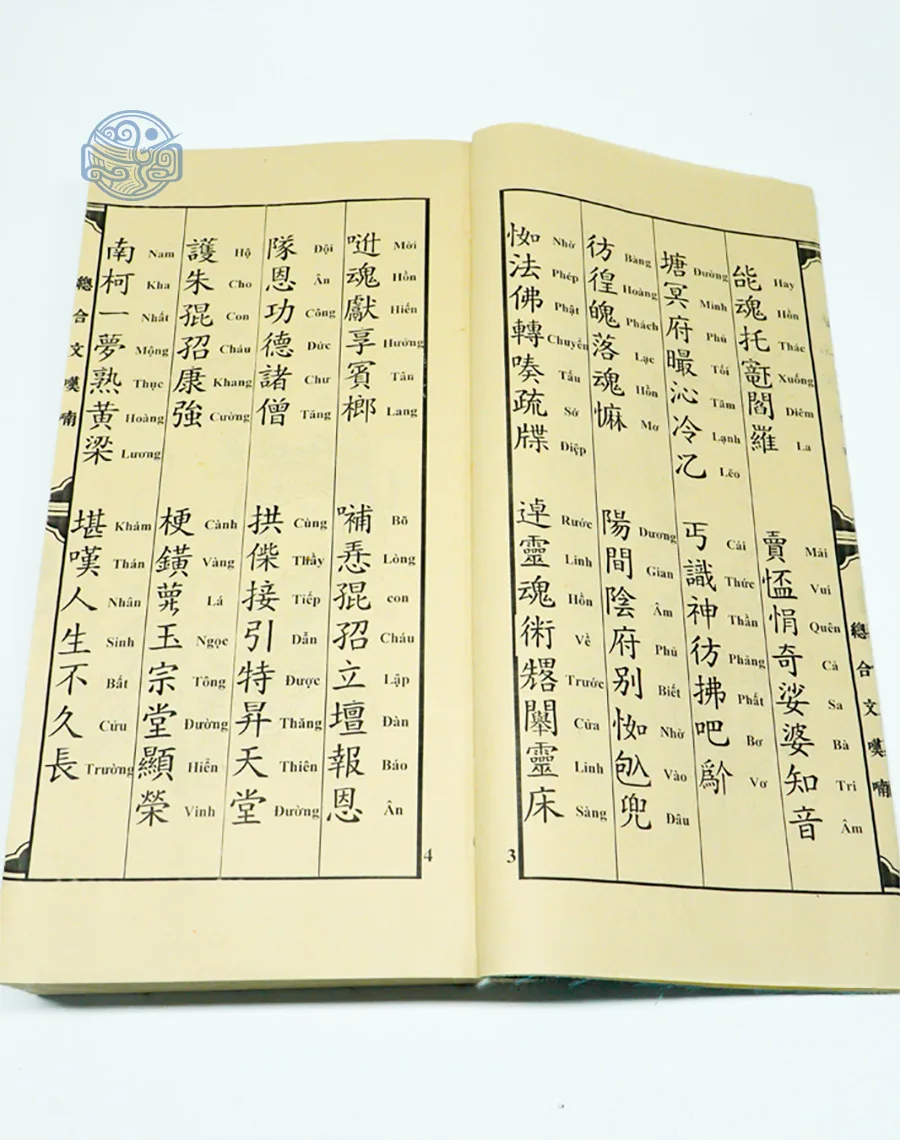 䏻魂托閻羅
Hay Hồn Thác Xuống Diêm La
賣𢝙悁奇娑婆知音
Mải Vui Quên Cả Sa Bà Tri Âm
塘冥府𣋁沁冷
Đường Minh Phủ Tối Tâm Lạnh Lẽo
丐識神彷拂吧
Cái Thức Thần Phảng Phất Bơ Vơ
彷徨魄落魂
Bàng Hoàng Phách Lạc Hồn Mơ
陽間陰府别𢘾兜
Dương Gian Âm Phủ Biết Nhờ Vào Đâu
𢘾法佛轉奏疏牒
Nhờ Phép Phật Chuyển Tấu Sớ Điệp
逴靈魂術靈床
Rước Linh Hồn Về Trước Cửa Linh Sàng
總合文嘆喃
3
魂獻享賓榔
Mời Hồn Hiến Hưởng Tân Lang
𢚸𡥵𡥙立壇報恩
Bõ Lòng con Cháu Lập Đàn Báo Ân
隊恩功德諸僧
Đội Ân Công Đức Chư Tăng
拱偨接引特昇天堂
Cùng Thầy Tiếp Dẫn Được Thăng Thiên Đường
護朱𡥵𡥙康強
Hộ Cho Con Cháu Khang Cường
梗鐄玉宗堂顯榮
Cành Vàng Lá Ngọc Tông Đường Hiển Vinh
南柯一夢熟黃梁
Nam Kha Nhất Mộng Thục Hoàng Lương
堪嘆人生不久長
Khám Thán Nhân Sinh Bất Cửu Trường
總合文嘆喃
4